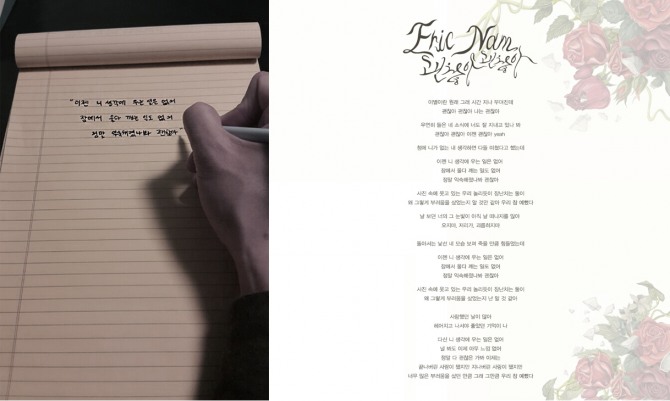 "이젠 니 생각에 우는 일은 없어
잠에서 울다 깨는 일도 없어
정말 익숙해졌나봐 괜찮아"
Eric Nam
괜찮아 괜찮아
이별이란 원래 그래 시간 지나 무뎌진데
괜찮아 괜찮아 나는 괜찮아
우연히 들은 네 소식에 너도 잘 지내고 있나 봐
괜찮아 괜찮아 이젠 괜찮아 yeah
첨에 니가 없는 내 생각하면 다들 어땠다고 했는데
이젠 니 생각에 우는 일은 없어
잠에서 울다 깨는 일도 없어
정말 익숙해졌나봐 괜찮아
사진 속에 웃고 있는 우리 놀리듯이 장난치는 둘이
왜 그렇게 부러움을 샀었는지 알 것만 같아 우리 참 예뻤다
날 보던 너의 그 눈빛이 아직 날 떠나지를 않아
모자라, 저리가, 괴롭히지마
돌아서는 낯선 네 모습 보며 죽을 만큼 힘들었는데
이젠 니 생각에 우는 일은 없어
잠에서 울다 깨는 일도 없어
정말 익숙해졌나봐 괜찮아
사진 속에 웃고 있는 우리 놀리듯이 장난치는 둘이
왜 그렇게 부러움을 샀었는지 난 알 것 같아
사랑했던 날이 많아
헤어지고 나서야 좋았던 기억이 나
다신 니 생각에 우는 일은 없어
날 봐도 이제 아무 느낌 없어
정말 다 괜찮은 거봐 이제는
끝나버린 사랑이 됐지만 지나버린 사랑이 됐지만
너무 많은 부러움을 샀던 만큼 그래 그만큼 우리 참 예뻤다